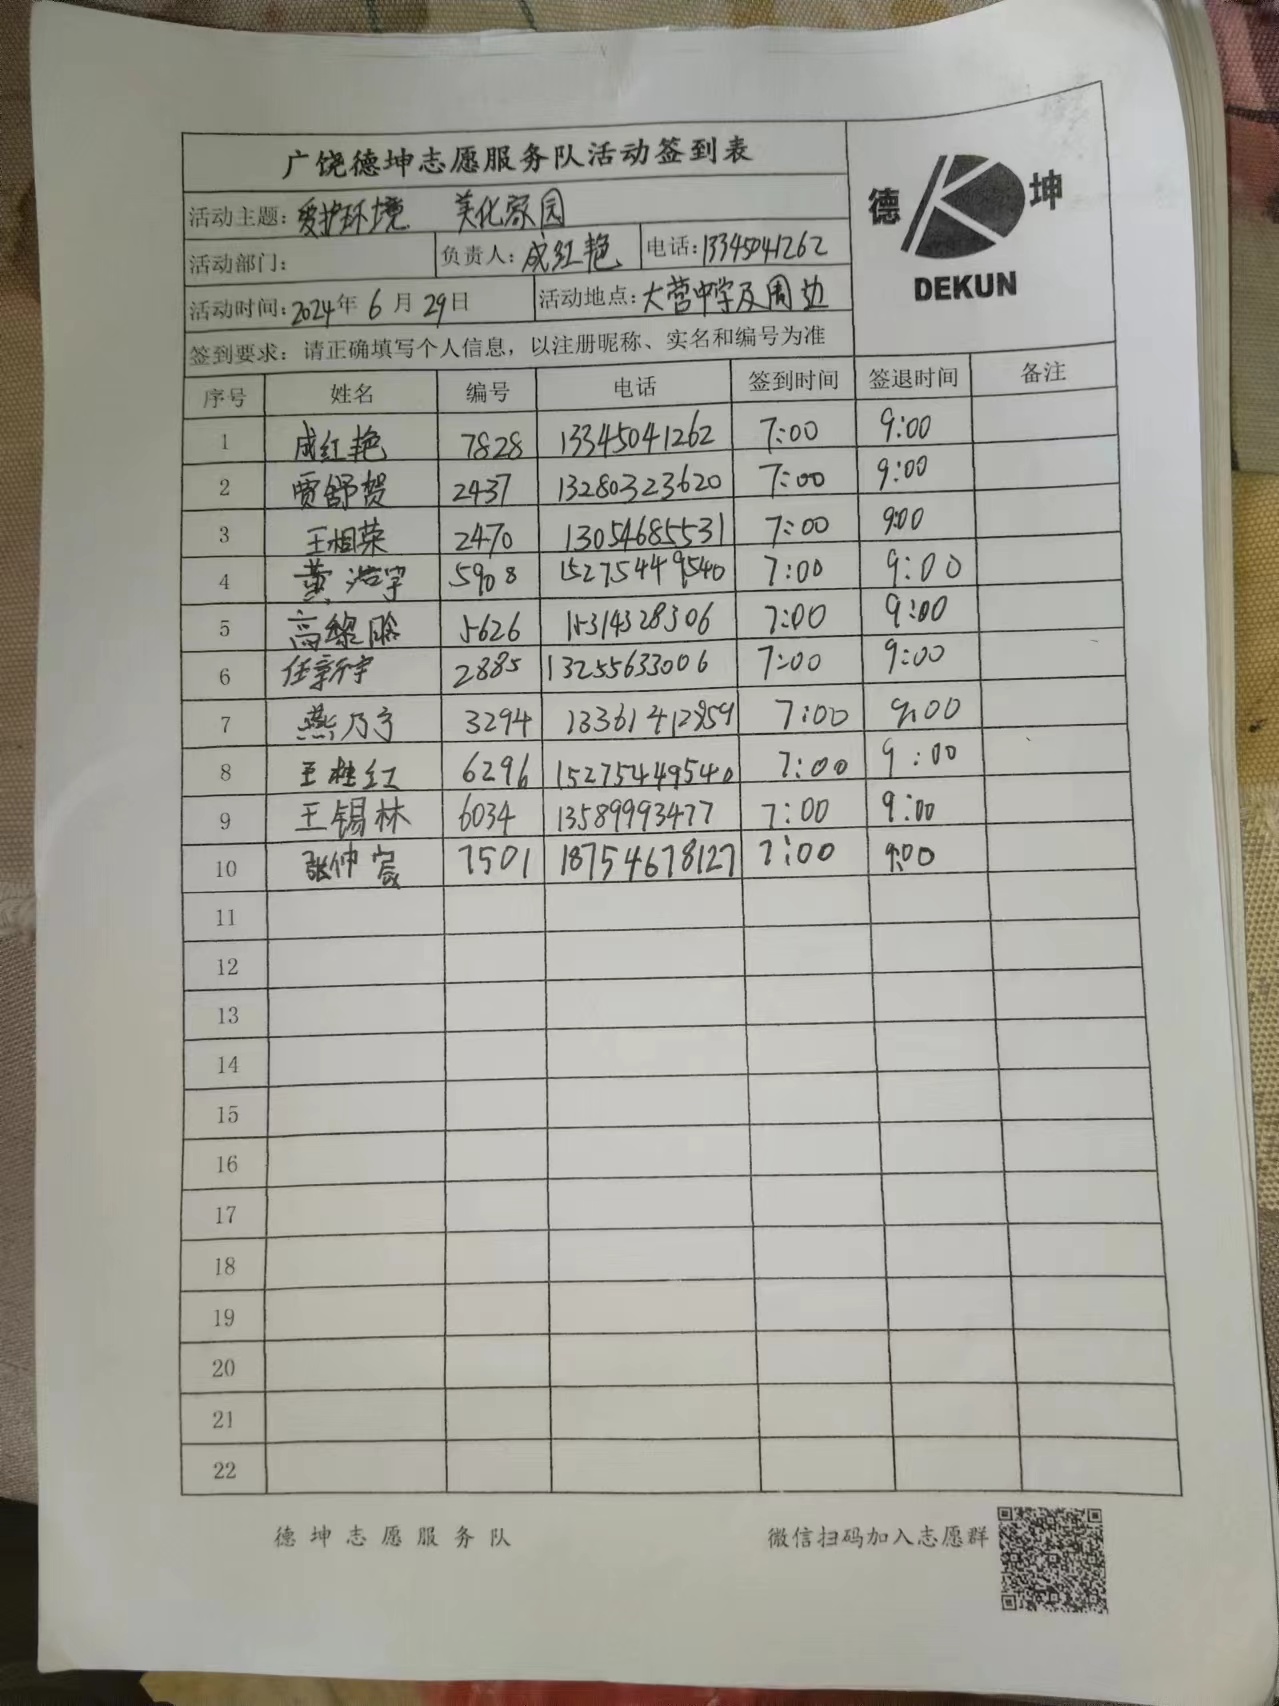 广饶德坤志愿服务队活动签到表
德 坤
DEKUN
活动主题: 爱护环境 美化家园
活动部门: 负责人: 成红艳 电话: 13345041262
活动时间: 2024年 6 月 29 日 活动地点: 大营中学及周边
签到要求: 请正确填写个人信息, 以注册昵称、实名和编号为准
序号 姓名 编号 电话 签到时间 签退时间 备注
1 成红艳 7828 13345041262 7:00 9:00
2 贾舒贺 2437 13280323620 7:00 9:00
3 王相荣 2470 13054685531 7:00 9:00
4 黄浩宇 5908 15275449540 7:00 9:00
5 高黎晗 5626 15314328306 7:00 9:00
6 任新宇 2885 13255633006 7:00 9:00
7 燕乃宁 3294 13361412859 7:00 9:00
8 王桂红 6296 15275449540 7:00 9:00
9 王锡林 6034 13589993477 7:00 9:00
10 张仲 7501 18754678127 7:00 9:00
11
12
13
14
15
16
17
18
19
20
21
22
德坤志愿服务队 微信扫码加入志愿群